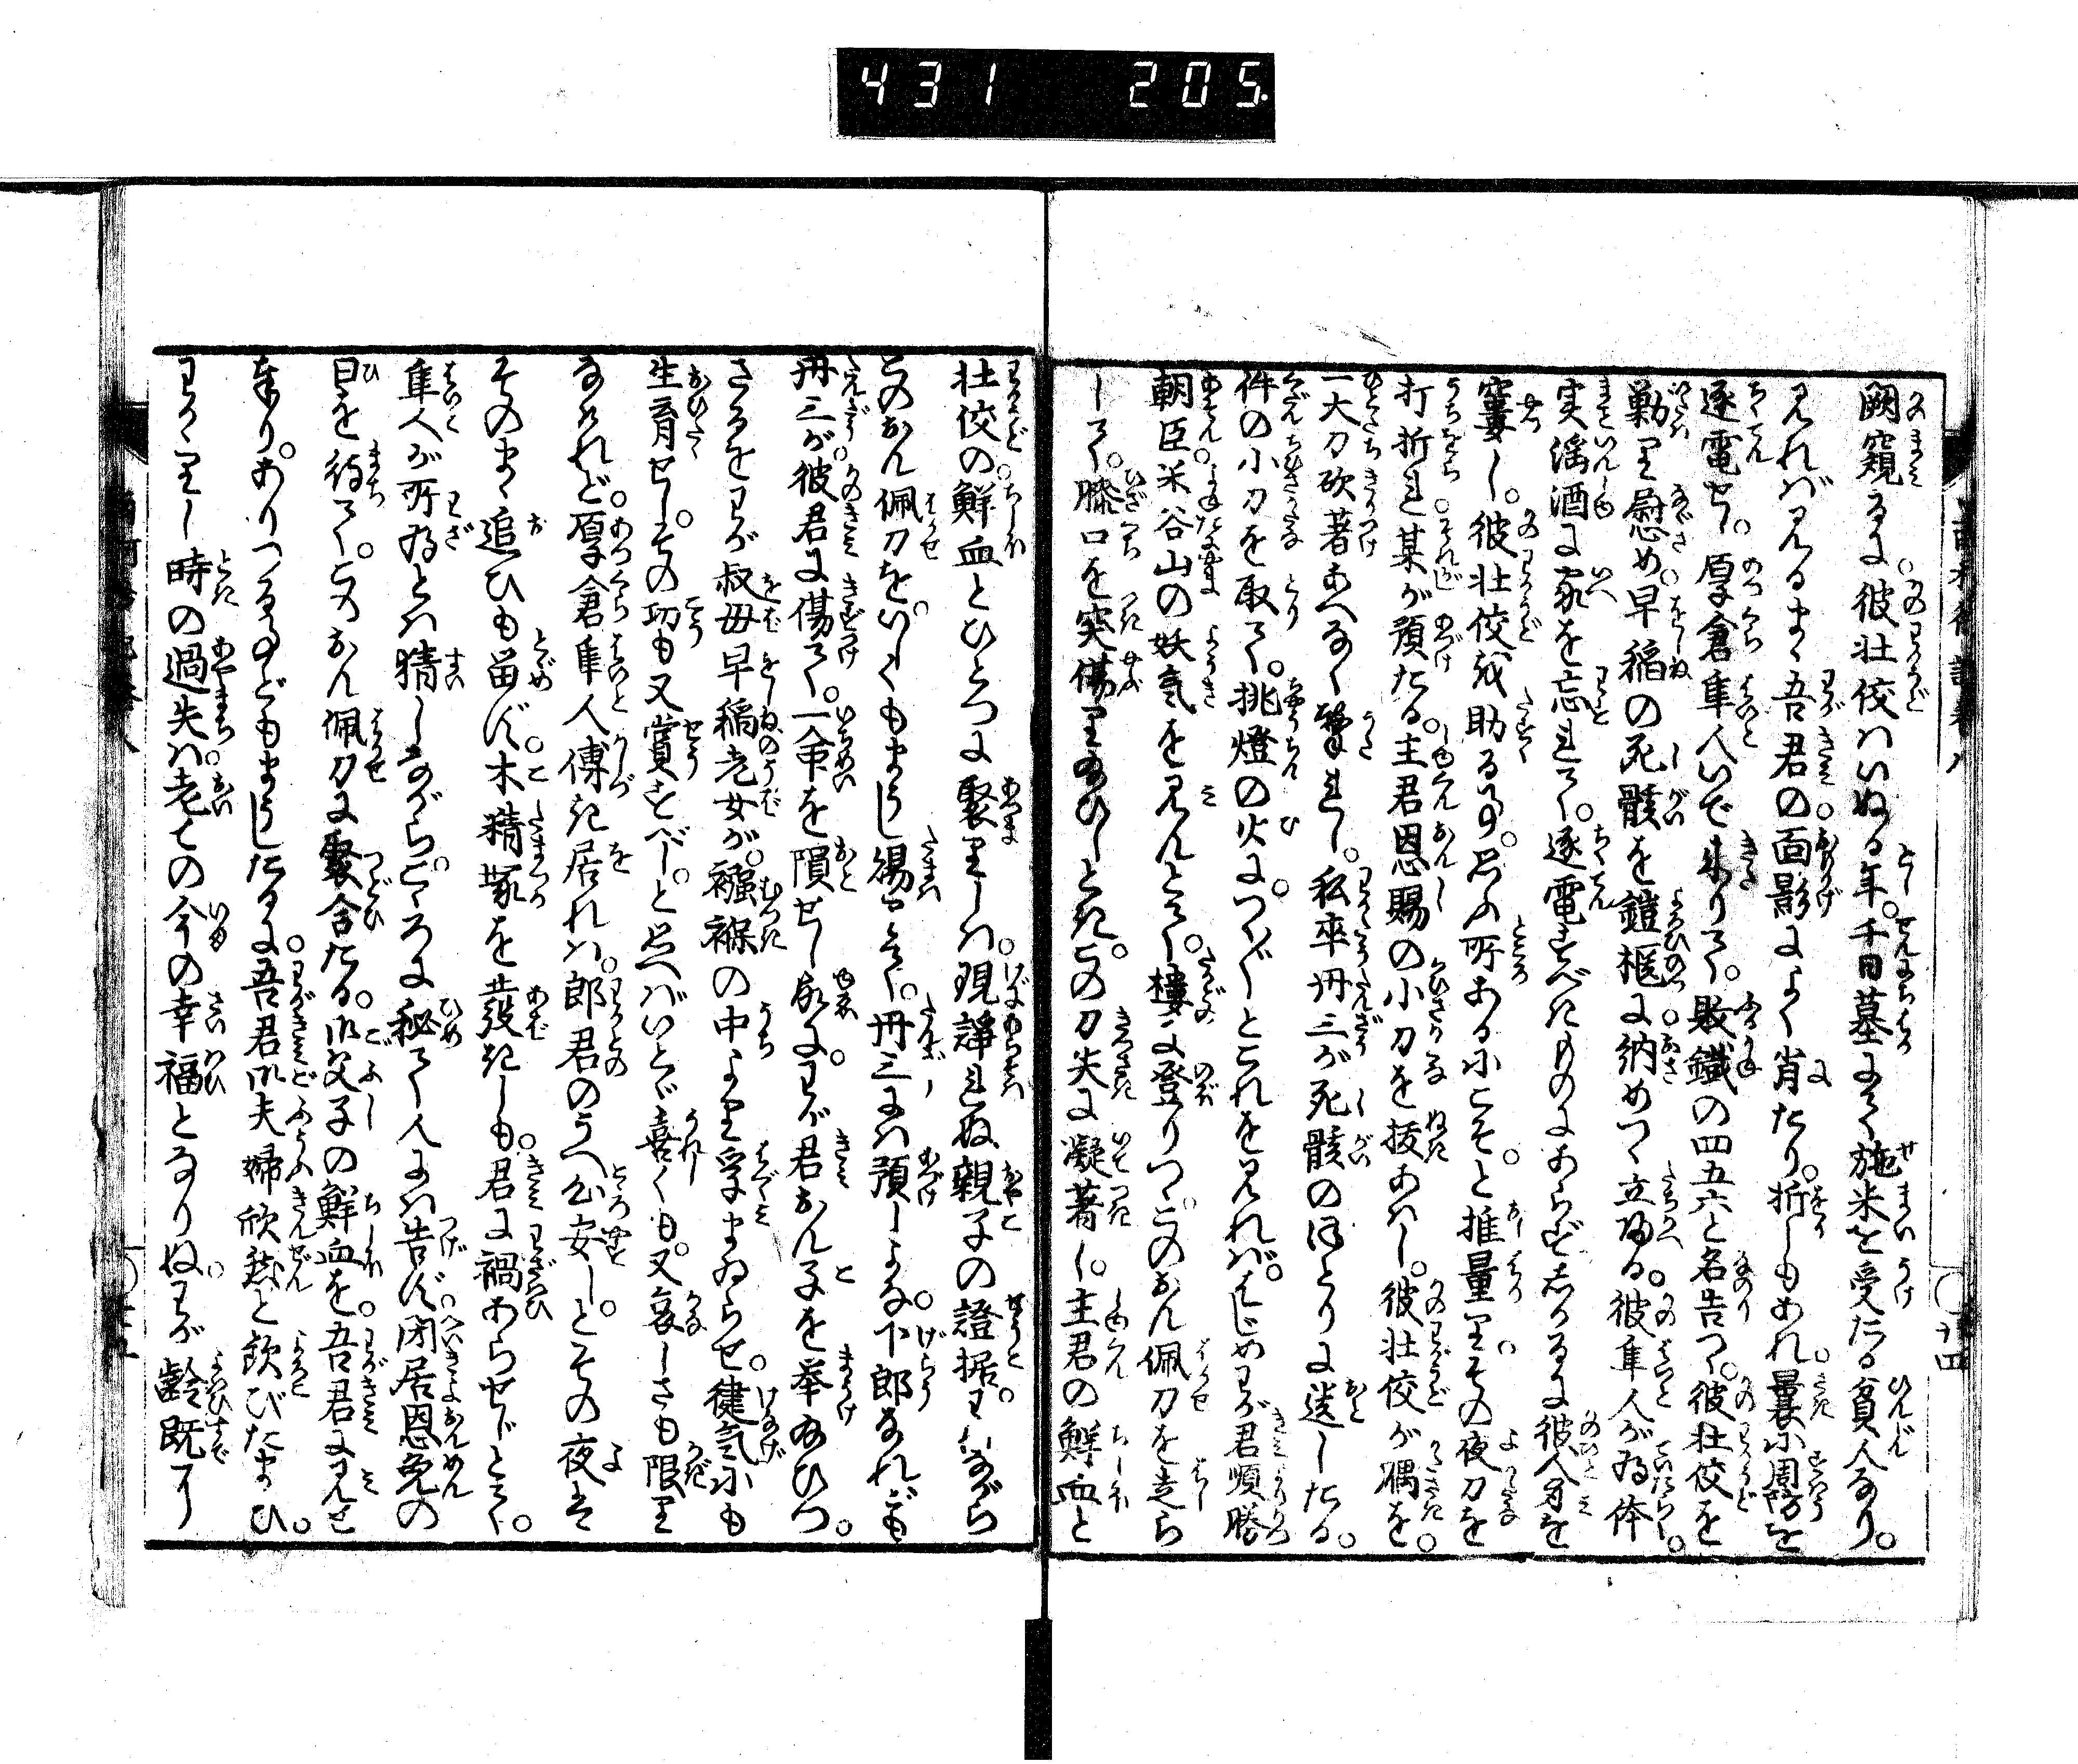 431 205
闕窺るに。彼壮佼はいぬる年。千日墓にて施米を受たる貧人なり。
見れば見るまゝ吾君の面影によく肖たり。折しもあれ。曩に周防を
逐電せし。厚倉隼人いで来りて。敗鐡の四五六と名告つゝ。彼壮佼を
勦り慰め。早稲の死骸を鎧櫃に納めつゝ立帰る。彼隼人が為体。
実に淫酒に家を忘れて。逐電すべきものにあらざるに彼人身を
窶し。彼壮佼を助る事。思ふ所あるにこそ。と推量りその夜刀を
打折れ某が預たる。主君恩賜の小刀を抜あはし。彼壮佼が𥔎を。
一大刀砍著あへなく撃れし。私卒丹三が死骸のほとりに送したる。
件の小刀を取て。挑燈の火に。つく〴〵とこれを見れば。はじめわが君順勝
朝臣。米谷山の妖気を見んとて。樓に登りつゝ。このおん佩刀を走ら
して。膝口を突傷り給ひしとき。この刀尖に凝著し。主君の鮮血と
壮佼の鮮血とひとつに聚りしは。現諍れぬ親子の證据。わりながら
このおん佩刀を。いくもまうし賜はらで。丹三には預しよな。下郎なれども
丹三が。彼君に傷て。一命を隕せし故に。わが君おん子を挙給ひつ。
さるをわが叔母早稲老女が。襁褓の中より孚まゐらせ。健気にも
生育せし。その功も又賞すべし。と思へばいとゞ喜くも。又哀しさも限り
なけれど。厚倉隼人傅き居れば。郎君のうへ心安し。とその夜は
そのまゝ追ひも留ず。木精塚を発きしも。君に禍あらせじとて。
隼人が所為とは猜しながら。こゝろに秘て人には告ず。閉居恩免の
日を待て。このおん佩刀に聚合たる。御父子の鮮血を。吾君に見せ
奉り。ありつる事どもまうしたるに。吾君御夫婦欣然と歓びたまひ。
わかゝりし時の過失は。老ての今の幸福となりぬ。わが齢既に